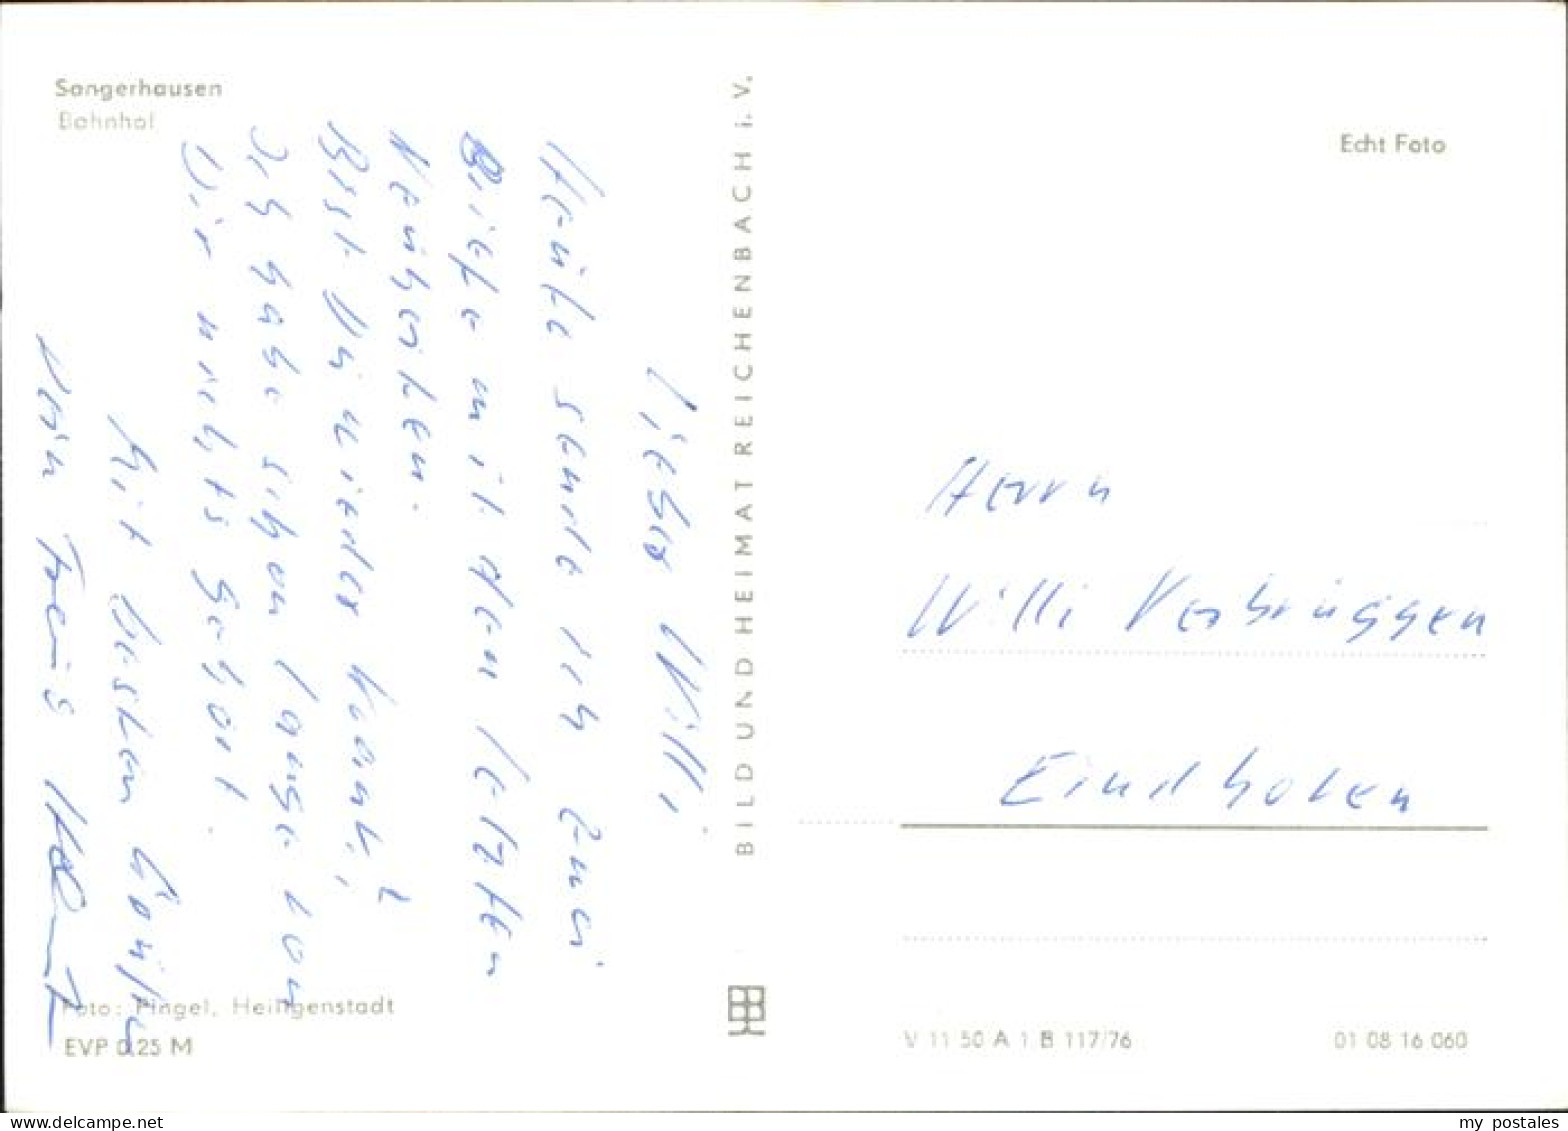 Sangerhausen
Bahnhof
Lieber Willi,
Heute sende ich zwei
Briefe mit den letzten
Neuheiten.
Bist Du wieder krank?
Ich habe schon lange von
Dir nichts gehört.
Mit besten Grüßen
Dein Freund
Foto: Pingel, Heiligenstadt
EVP 0,25 M
BILD UND HEIMAT REICHENBACH i. V.
Echt Foto
Herrn
Willi Verbrüggen
Eindhoven
V 11 50 A 1 B 117/76
01 08 16 060
my_postales